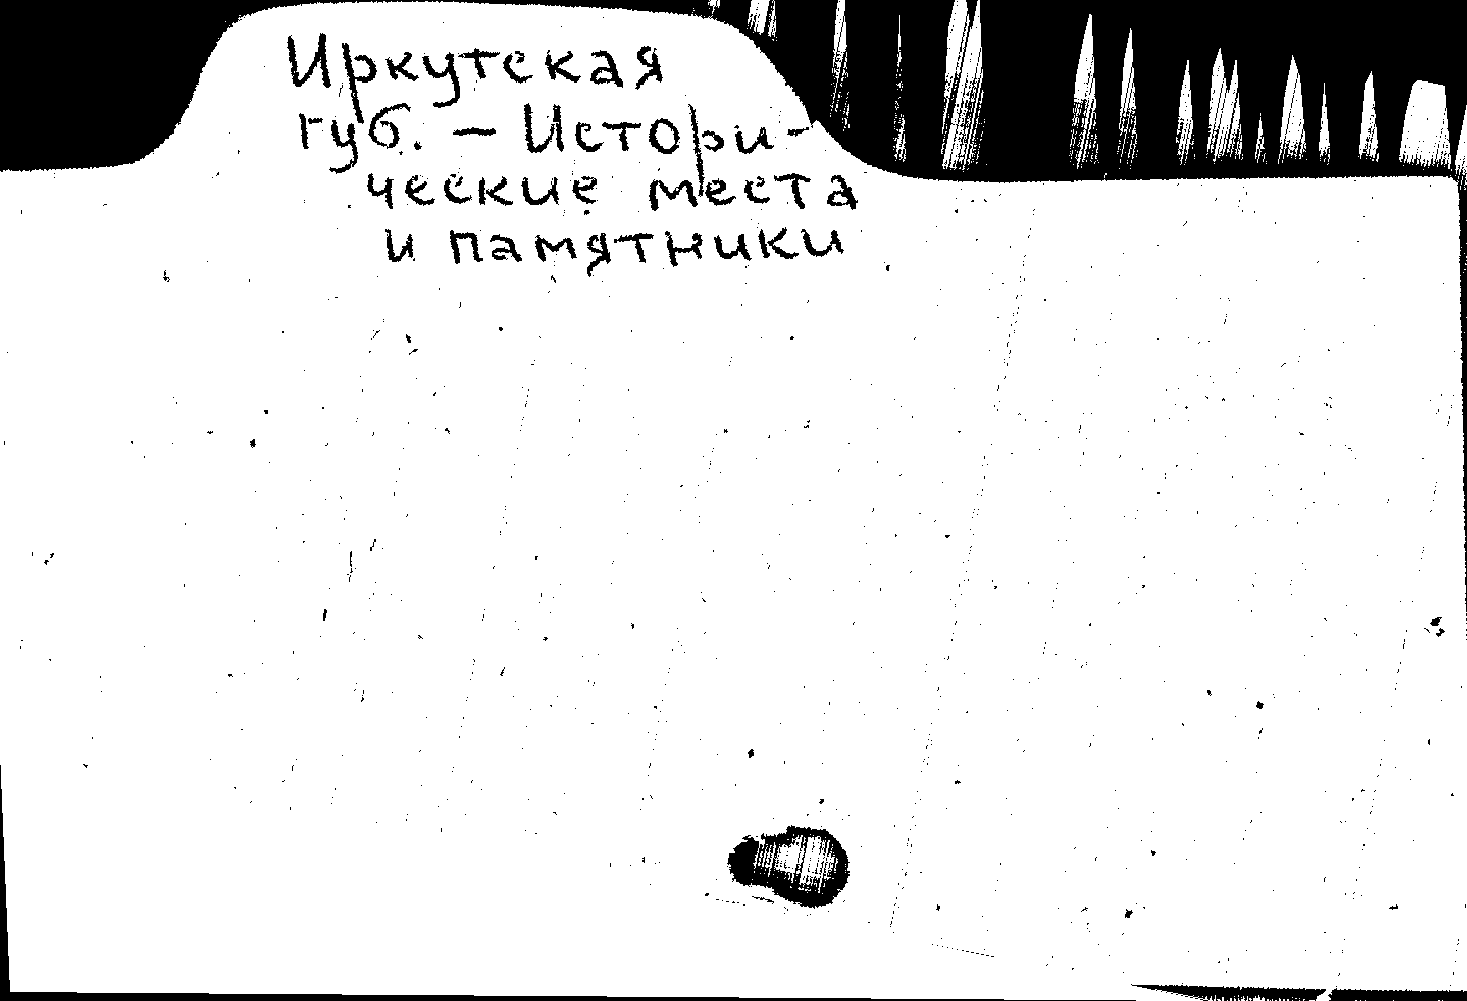 Иркутская
губ. – Истори-
ческие места
и памятники